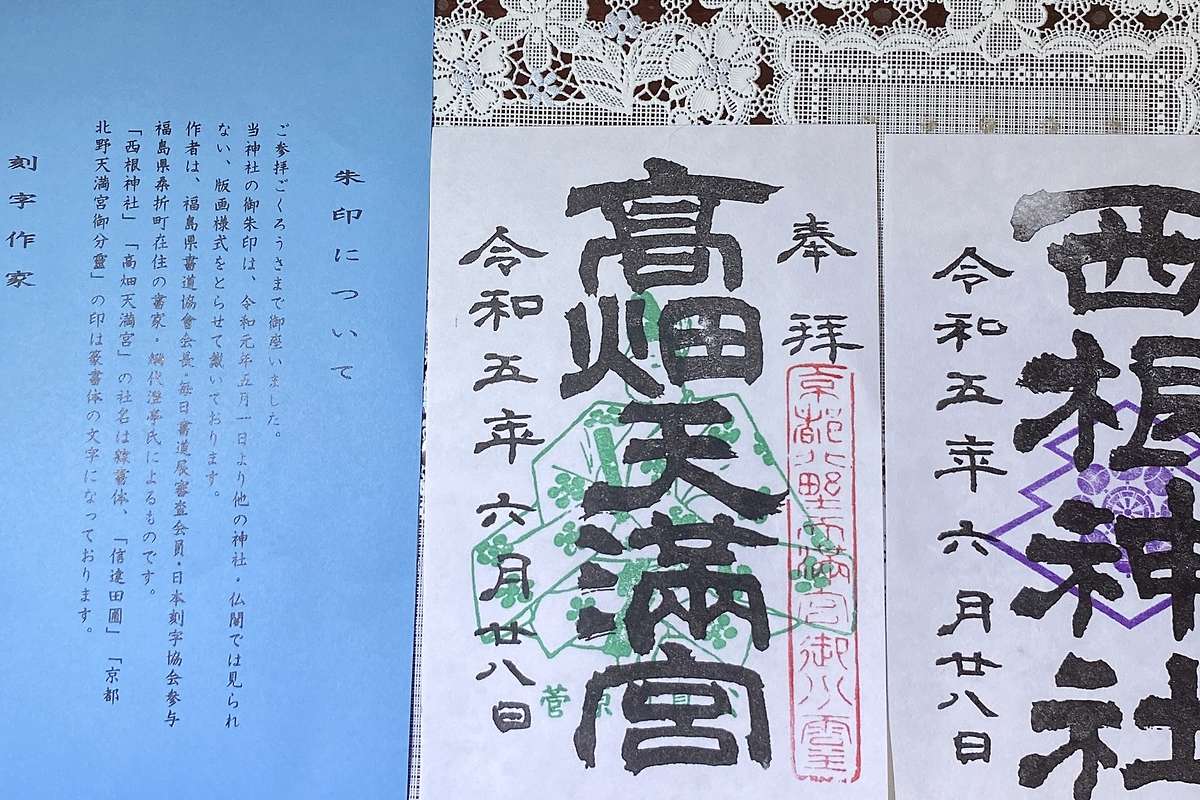 朱印について
ご参拝ごくろうさまで御座いました。
当神社の御朱印は、令和元年五月一日より他の神社・仏閣では見られ
ない、版画様式をとらせて戴いております。
作者は、福島県書道協會会長・毎日書道展審査会員・日本刻字協会参与
福島県桑折町在住の書家・代澄亭氏によるものです。
「西根神社」「高畑天満宮」の社名は隷書体、「信達田圃」「京都
北野天満宮御分靈」の印は篆書体の文字になっております。
刻字作家
奉拝
京都北野天満宮御分霊
髙畑天満宮
菅原
令和五年六月廿八日
西根神社
令和五年六月廿八日